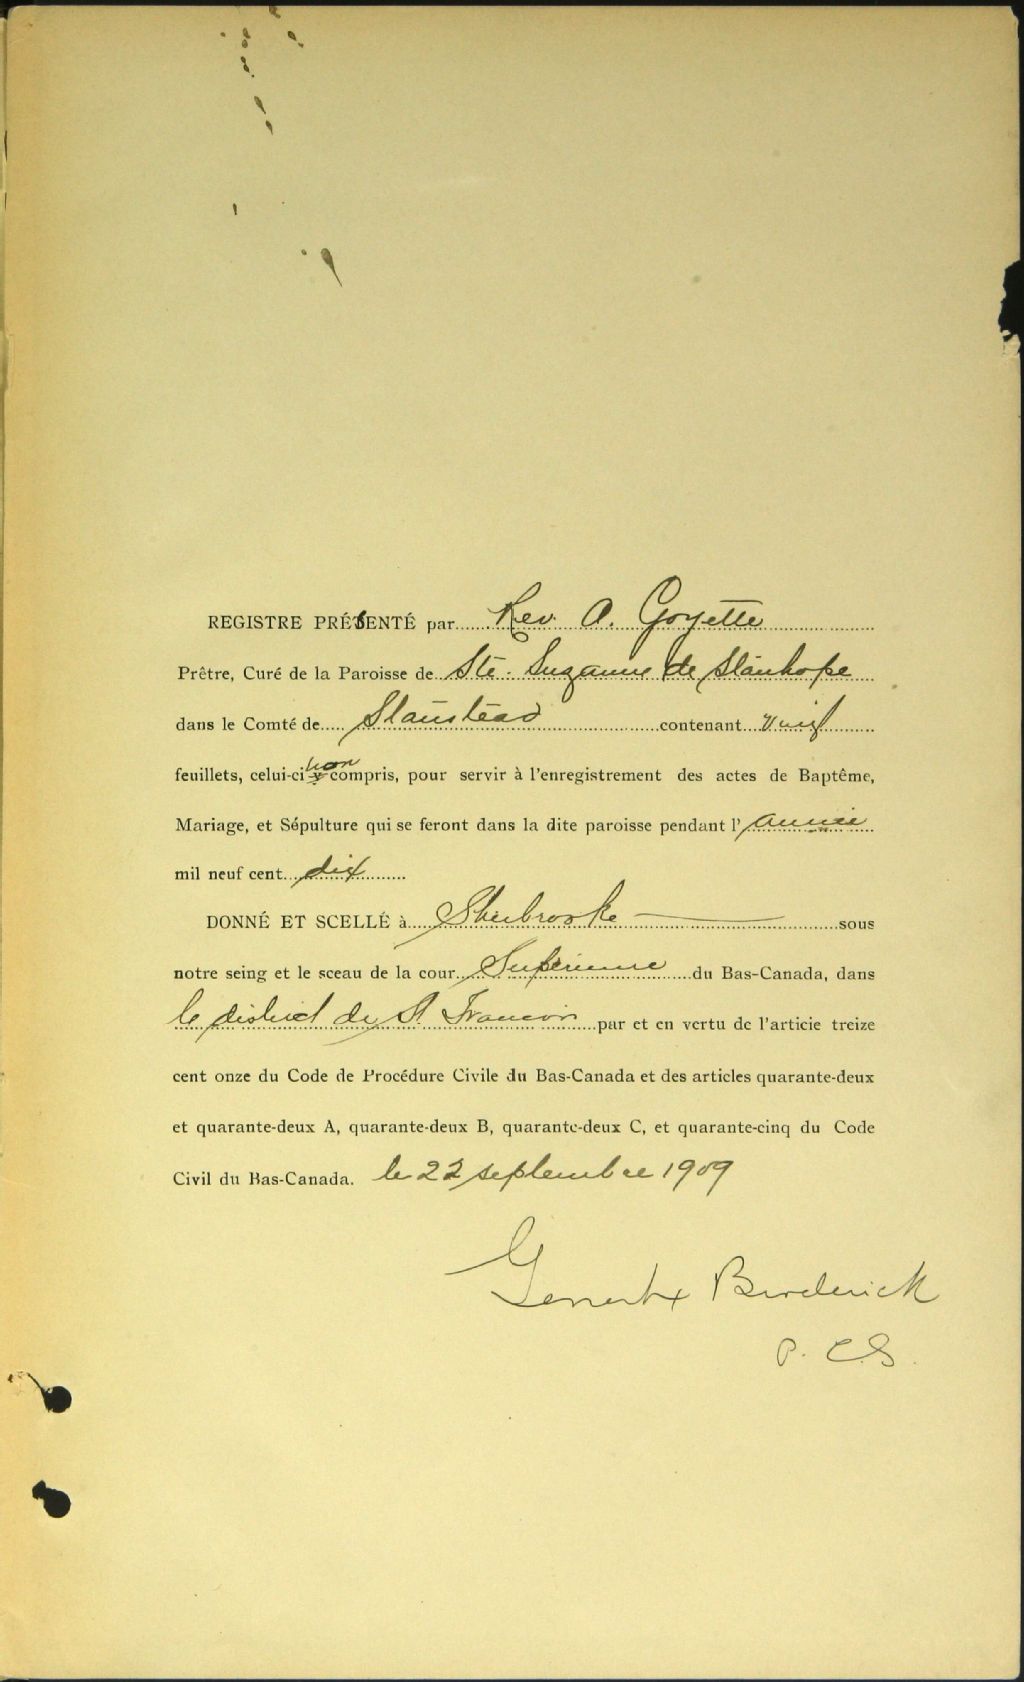 REGISTRE PRÉSENTÉ par Rev. A. Goyette
Prêtre, Curé de la Paroisse de Ste. Suzanne de Stanhope
dans le Comté de Stanstead contenant
feuillets, celui-ci non compris, pour servir à l'enregistrement des actes de Baptême,
Mariage, et Sépulture qui se feront dans la dite paroisse pendant l'année
mil neuf cent dix
DONNÉ ET SCELLÉ à Sherbrooke sous
notre seing et le sceau de la cour Supérieure du Bas-Canada, dans
le district de St Francois par et en vertu de l'article treize
cent onze du Code de Procédure Civile du Bas-Canada et des articles quarante-deux
et quarante-deux A, quarante-deux B, quarante-deux C, et quarante-cinq du Code
Civil du Bas-Canada. le 22 septembre 1909
Broderick
P. C. S.